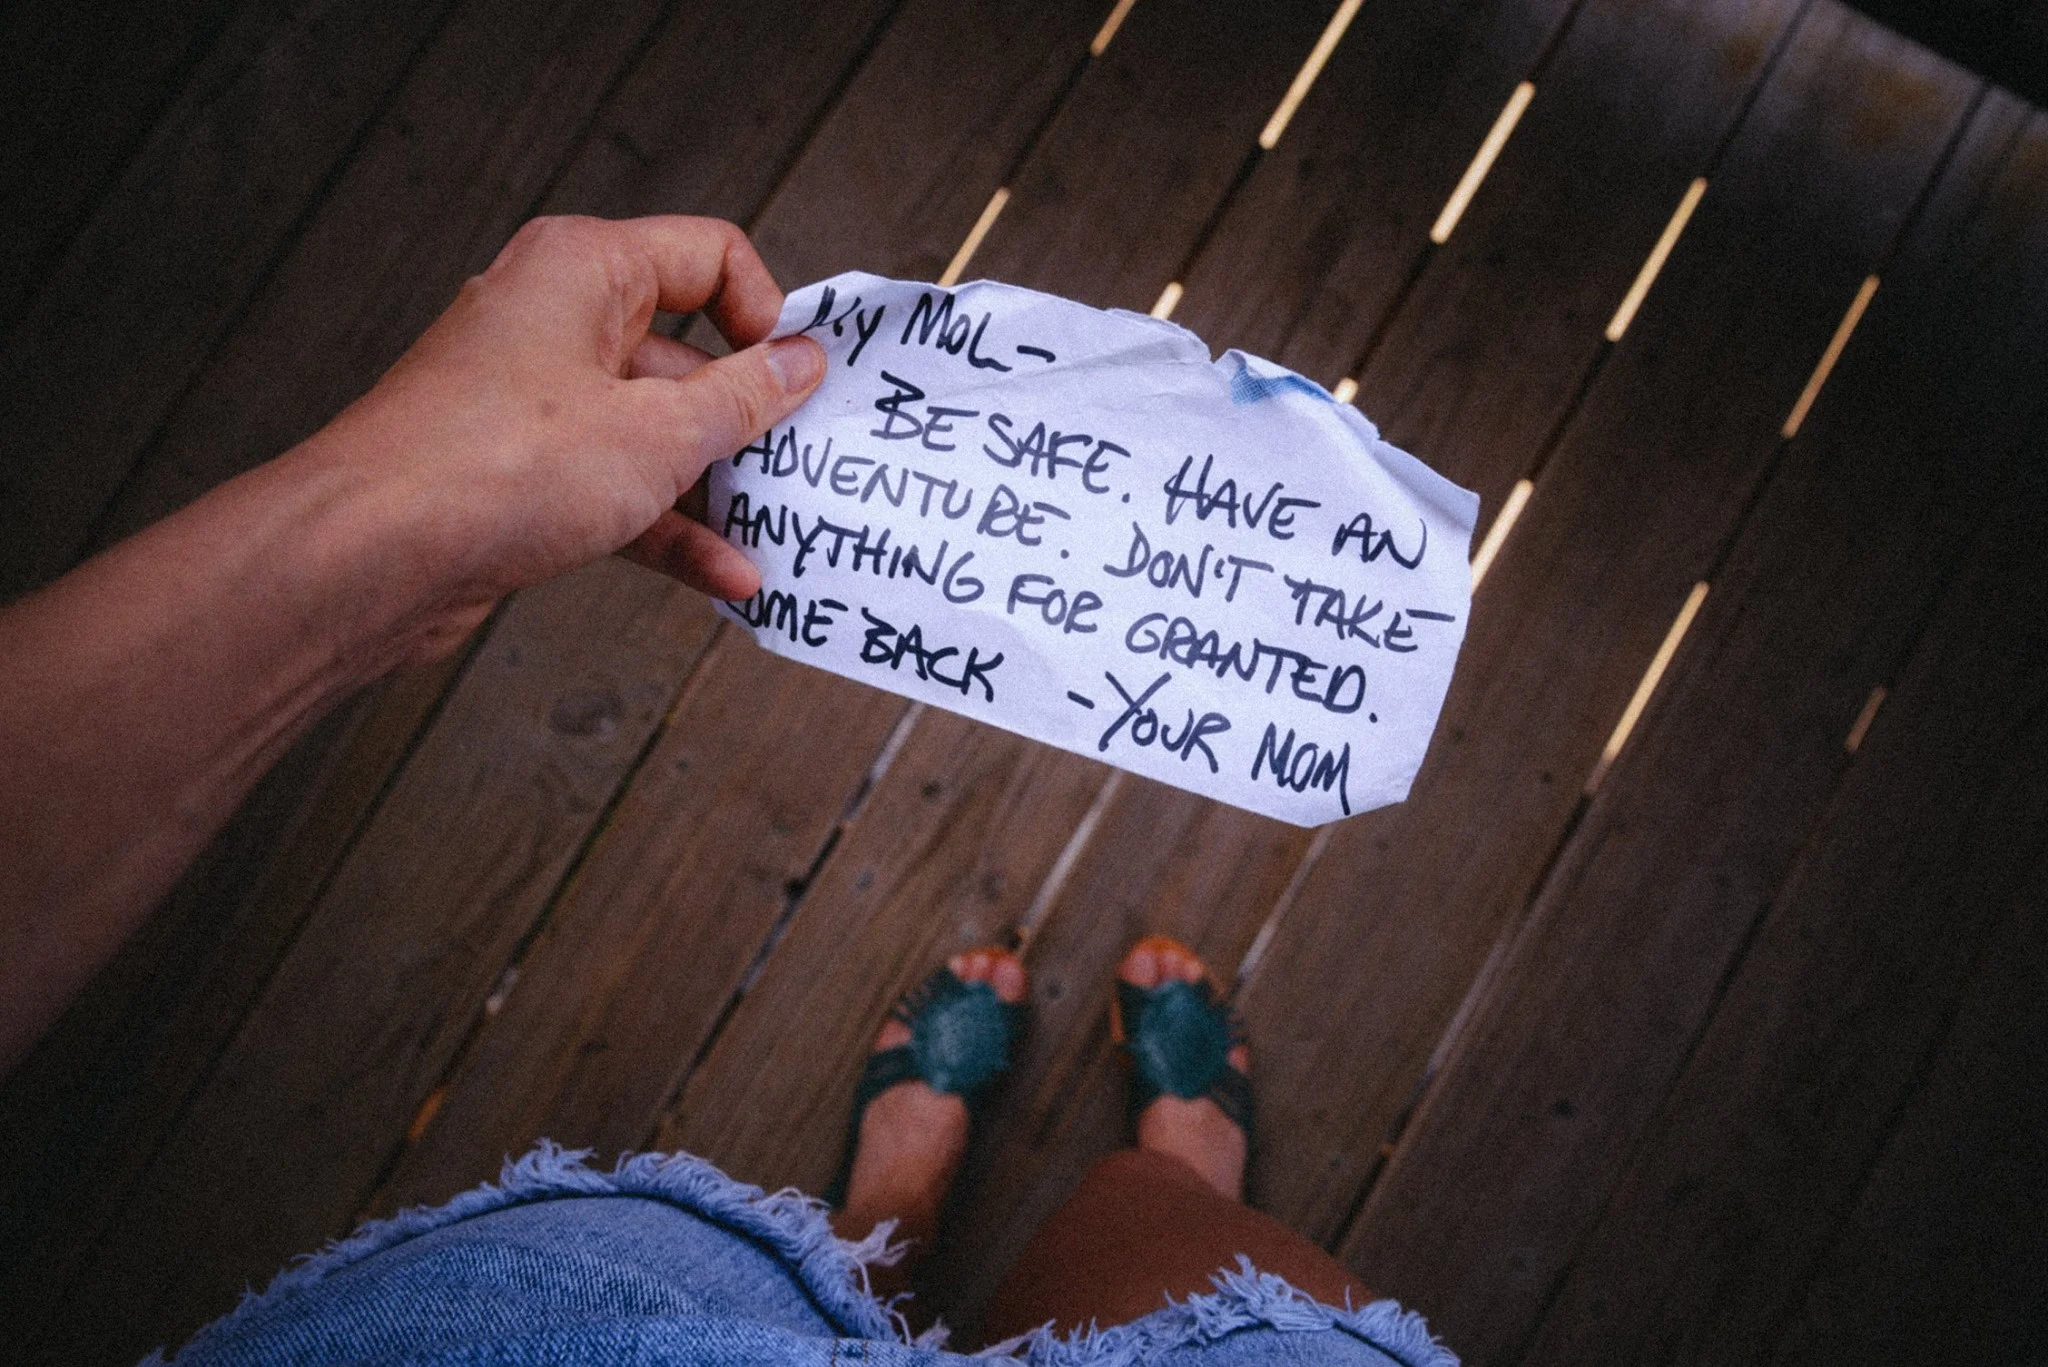 My MOL-
BE SAFE. HAVE AN
ADVENTURE. DON'T TAKE
ANYTHING FOR GRANTED.
COME BACK -YOUR MOM